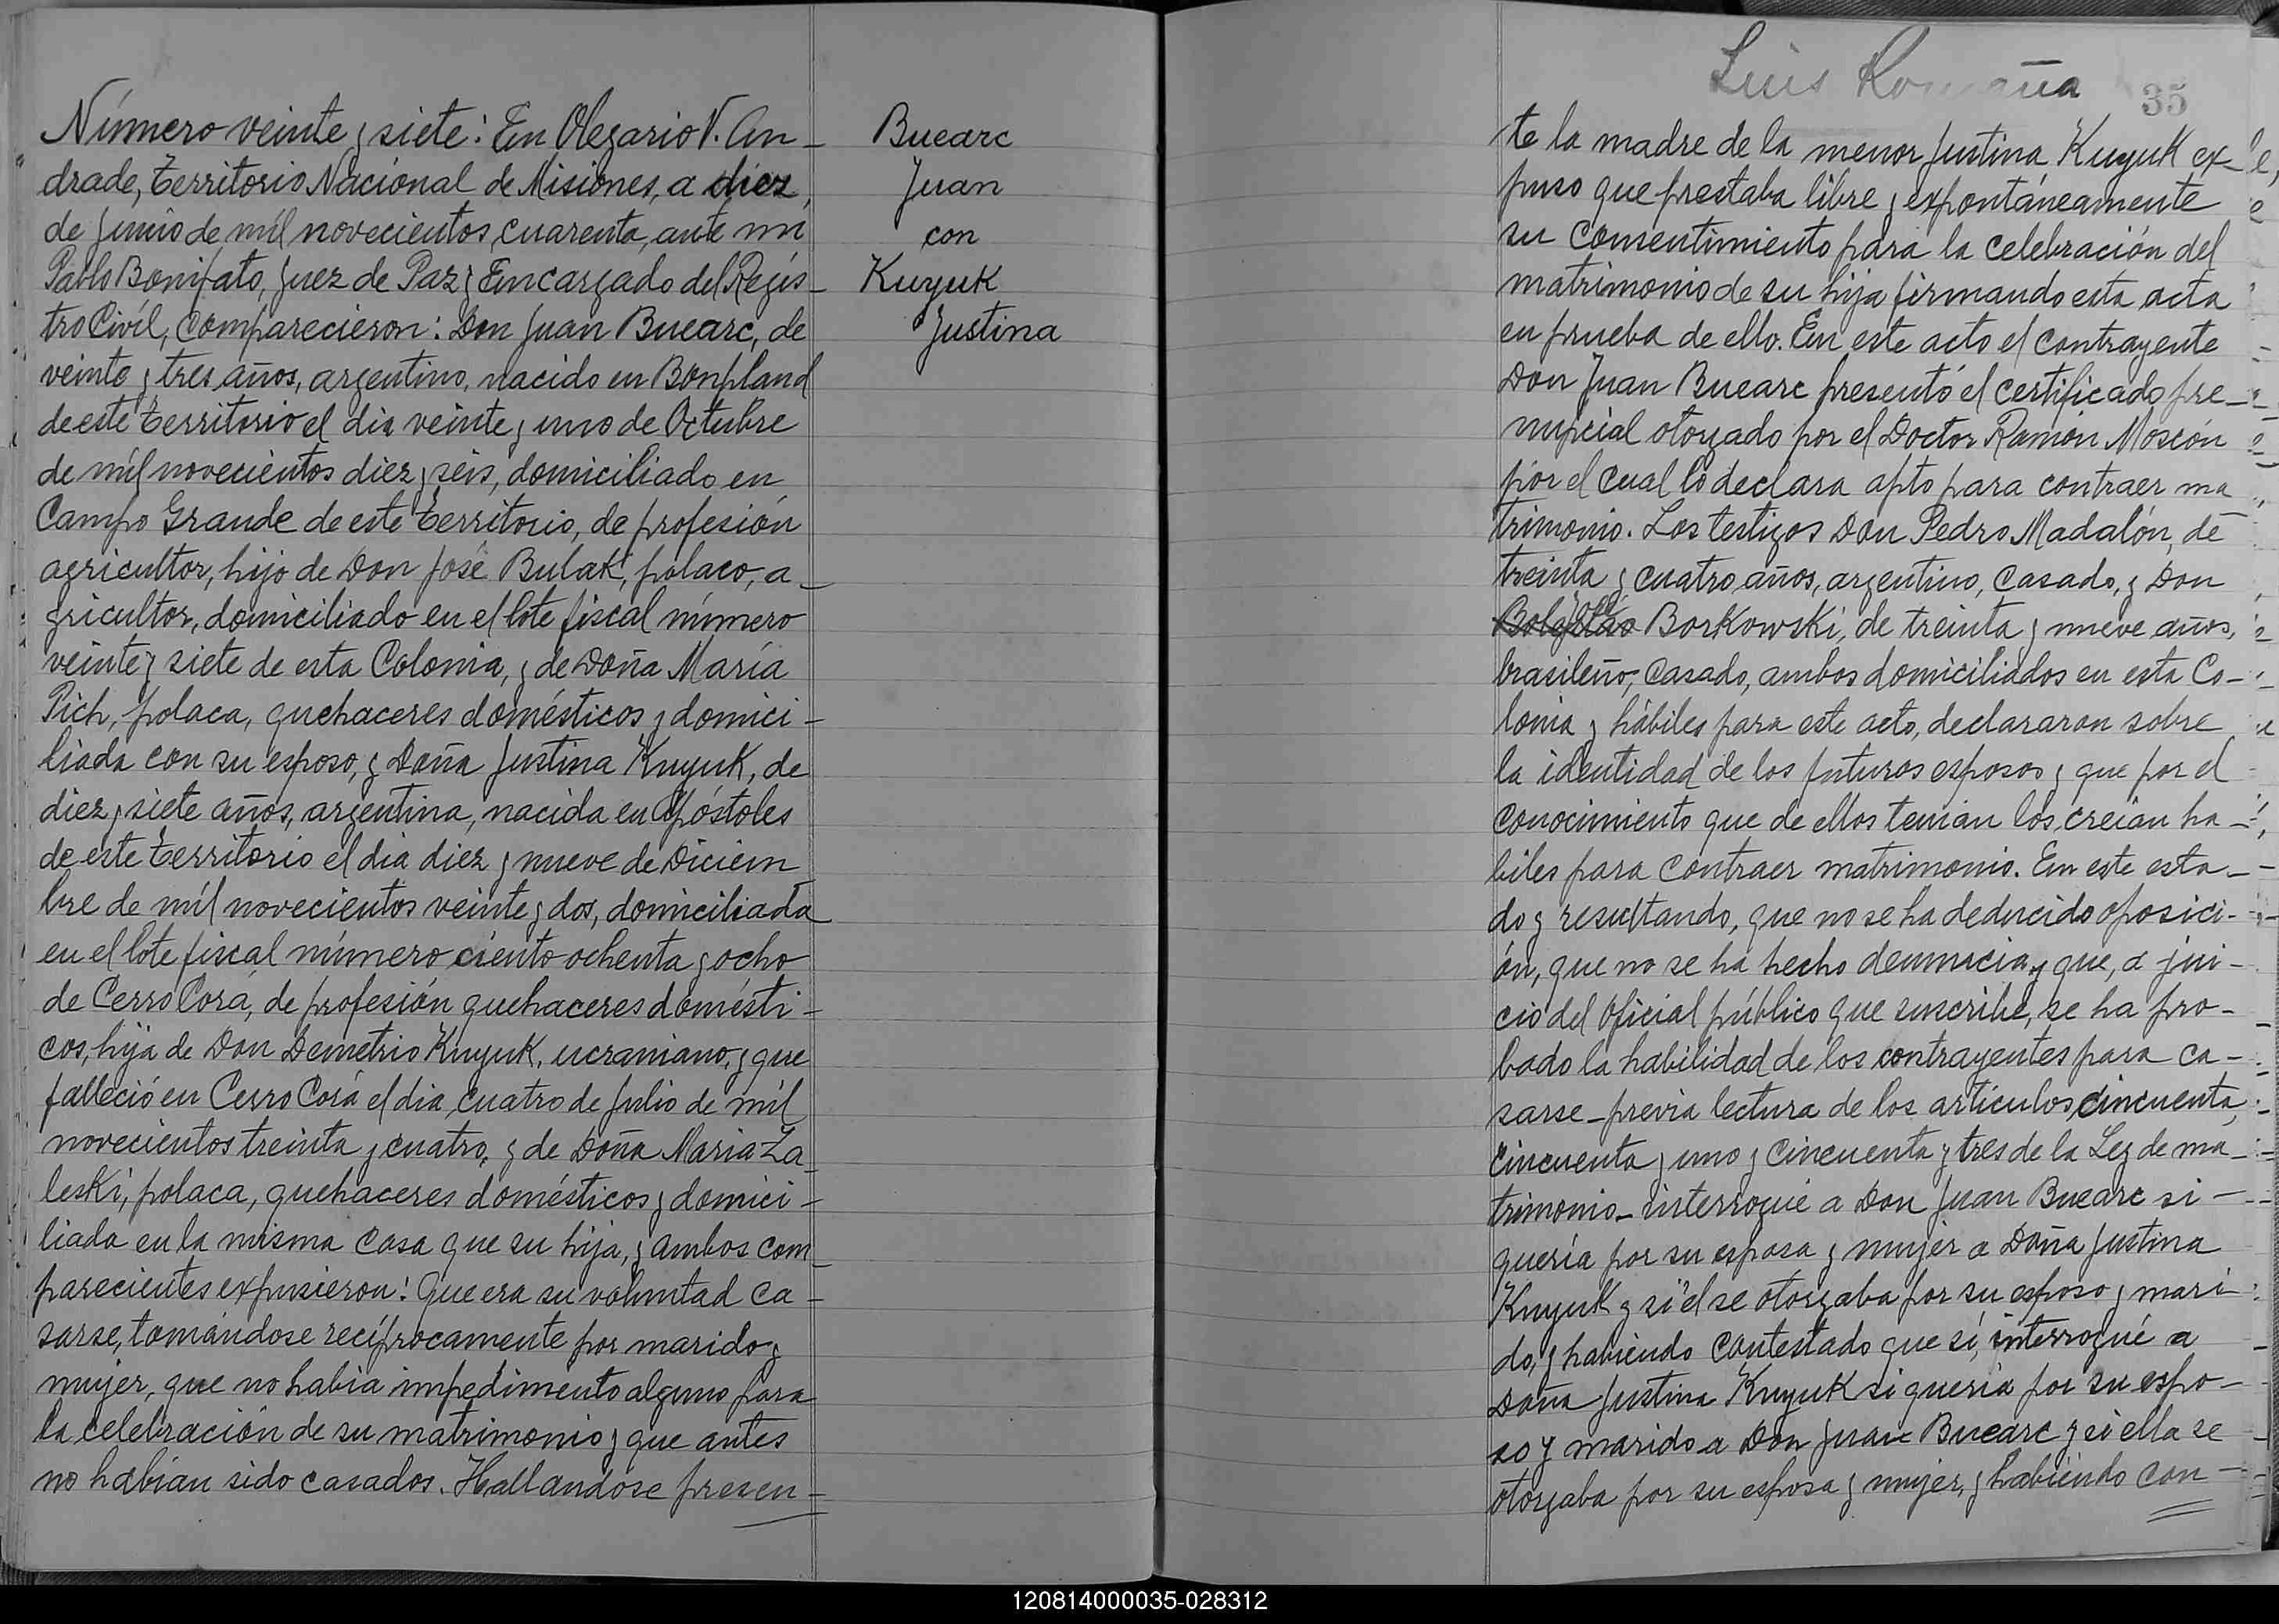 Número veinte y siete: En Olegario V. An-
drade, Territorio Nacional de Misiones, a diez
de Junio de mil novecientos cuarenta, ante mi
Pablo Bonifato, Juez de Paz y Encargado del Regis-
tro Civil, comparecieron: Don Juan Buearc, de
veinte y tres años, argentino, nacido en Bonpland
de este territorio el dia veinte y uno de Octubre
de mil novecientos diez y seis, domiciliado en
Campo Grande de este territorio, de profesión
agricultor, hijo de Don José Bulak, polaco, a-
gricultor, domiciliado en el lote fiscal número
veinte y siete de esta Colonia, y de Doña María
Pich, polaca, quehaceres domésticos y domici-
liada con su esposo, y Doña Justina Kuyuk, de
diez y siete años, argentina, nacida en Apóstoles
de este territorio el dia diez y nueve de Diciem
bre de mil novecientos veinte y dos, domiciliada
en el lote fiscal número ciento ochenta y ocho
de Cerro Corá, de profesión quehaceres domésti-
cos, hija de Don Demetrio Kuyuk, ucraniano, y que
falleció en Cerro Corá el dia cuatro de Julio de mil
novecientos treinta y cuatro, y de Doña Maria Za-
leski, polaca, quehaceres domésticos y domici-
liada en la misma casa que su hija, y ambos com-
parecientes expusieron: Que era su voluntad ca-
sarse, tomándose recíprocamente por marido y
mujer, que no habia impedimento alguno para
la celebración de su matrimonio y que antes
no habían sido casados. Hallandose presen-
Buearc
Juan
con
Kuyuk
Justina
Luis Romaña
35
te la madre de la menor Justina Kuyuk ex-
puso que prestaba libre y expontáneamente
su consentimiento para la celebración del
matrimonio de su hija firmando esta acta
en prueba de ello. En este acto el contrayente
Don Juan Buearc presentó el certificado pre-
nupcial otorgado por el Doctor Ramón Moscón
por el cual lo declara apto para contraer ma
trimonio. Los testigos Don Pedro Madalón, de
treinta y cuatro años, argentino, casado, y Don
José Borkowski, de treinta y nueve años,
brasileño, casado, ambos domiciliados en esta Co-
lonia y hábiles para este acto, declararon sobre
la identidad de los futuros esposos y que por el
conocimiento que de ellos tenian los creían há-
biles para contraer matrimonio. En este esta-
do y resultando, que no se ha deducido oposici-
ón, que no se há hecho denuncia y que, a jui-
cio del oficial público que suscribe, se ha pro-
bado la habilidad de los contrayentes para ca-
sarse-previa lectura de los artículos cincuenta,
cincuenta y uno y cincuenta y tres de la Ley de ma-
trimonio-interrogué a Don Juan Buearc si
quería por su esposa y mujer a Doña Justina
Kuyuk y si él se otorgaba por su esposo y mari
do, y habiendo contestado que sí, interrogué a
Doña Justina Kuyuk si quería por su espo-
so y marido a Don Juan Buearc y si ella se
otorgaba por su esposa y mujer, y habiendo con-
120814000035-028312